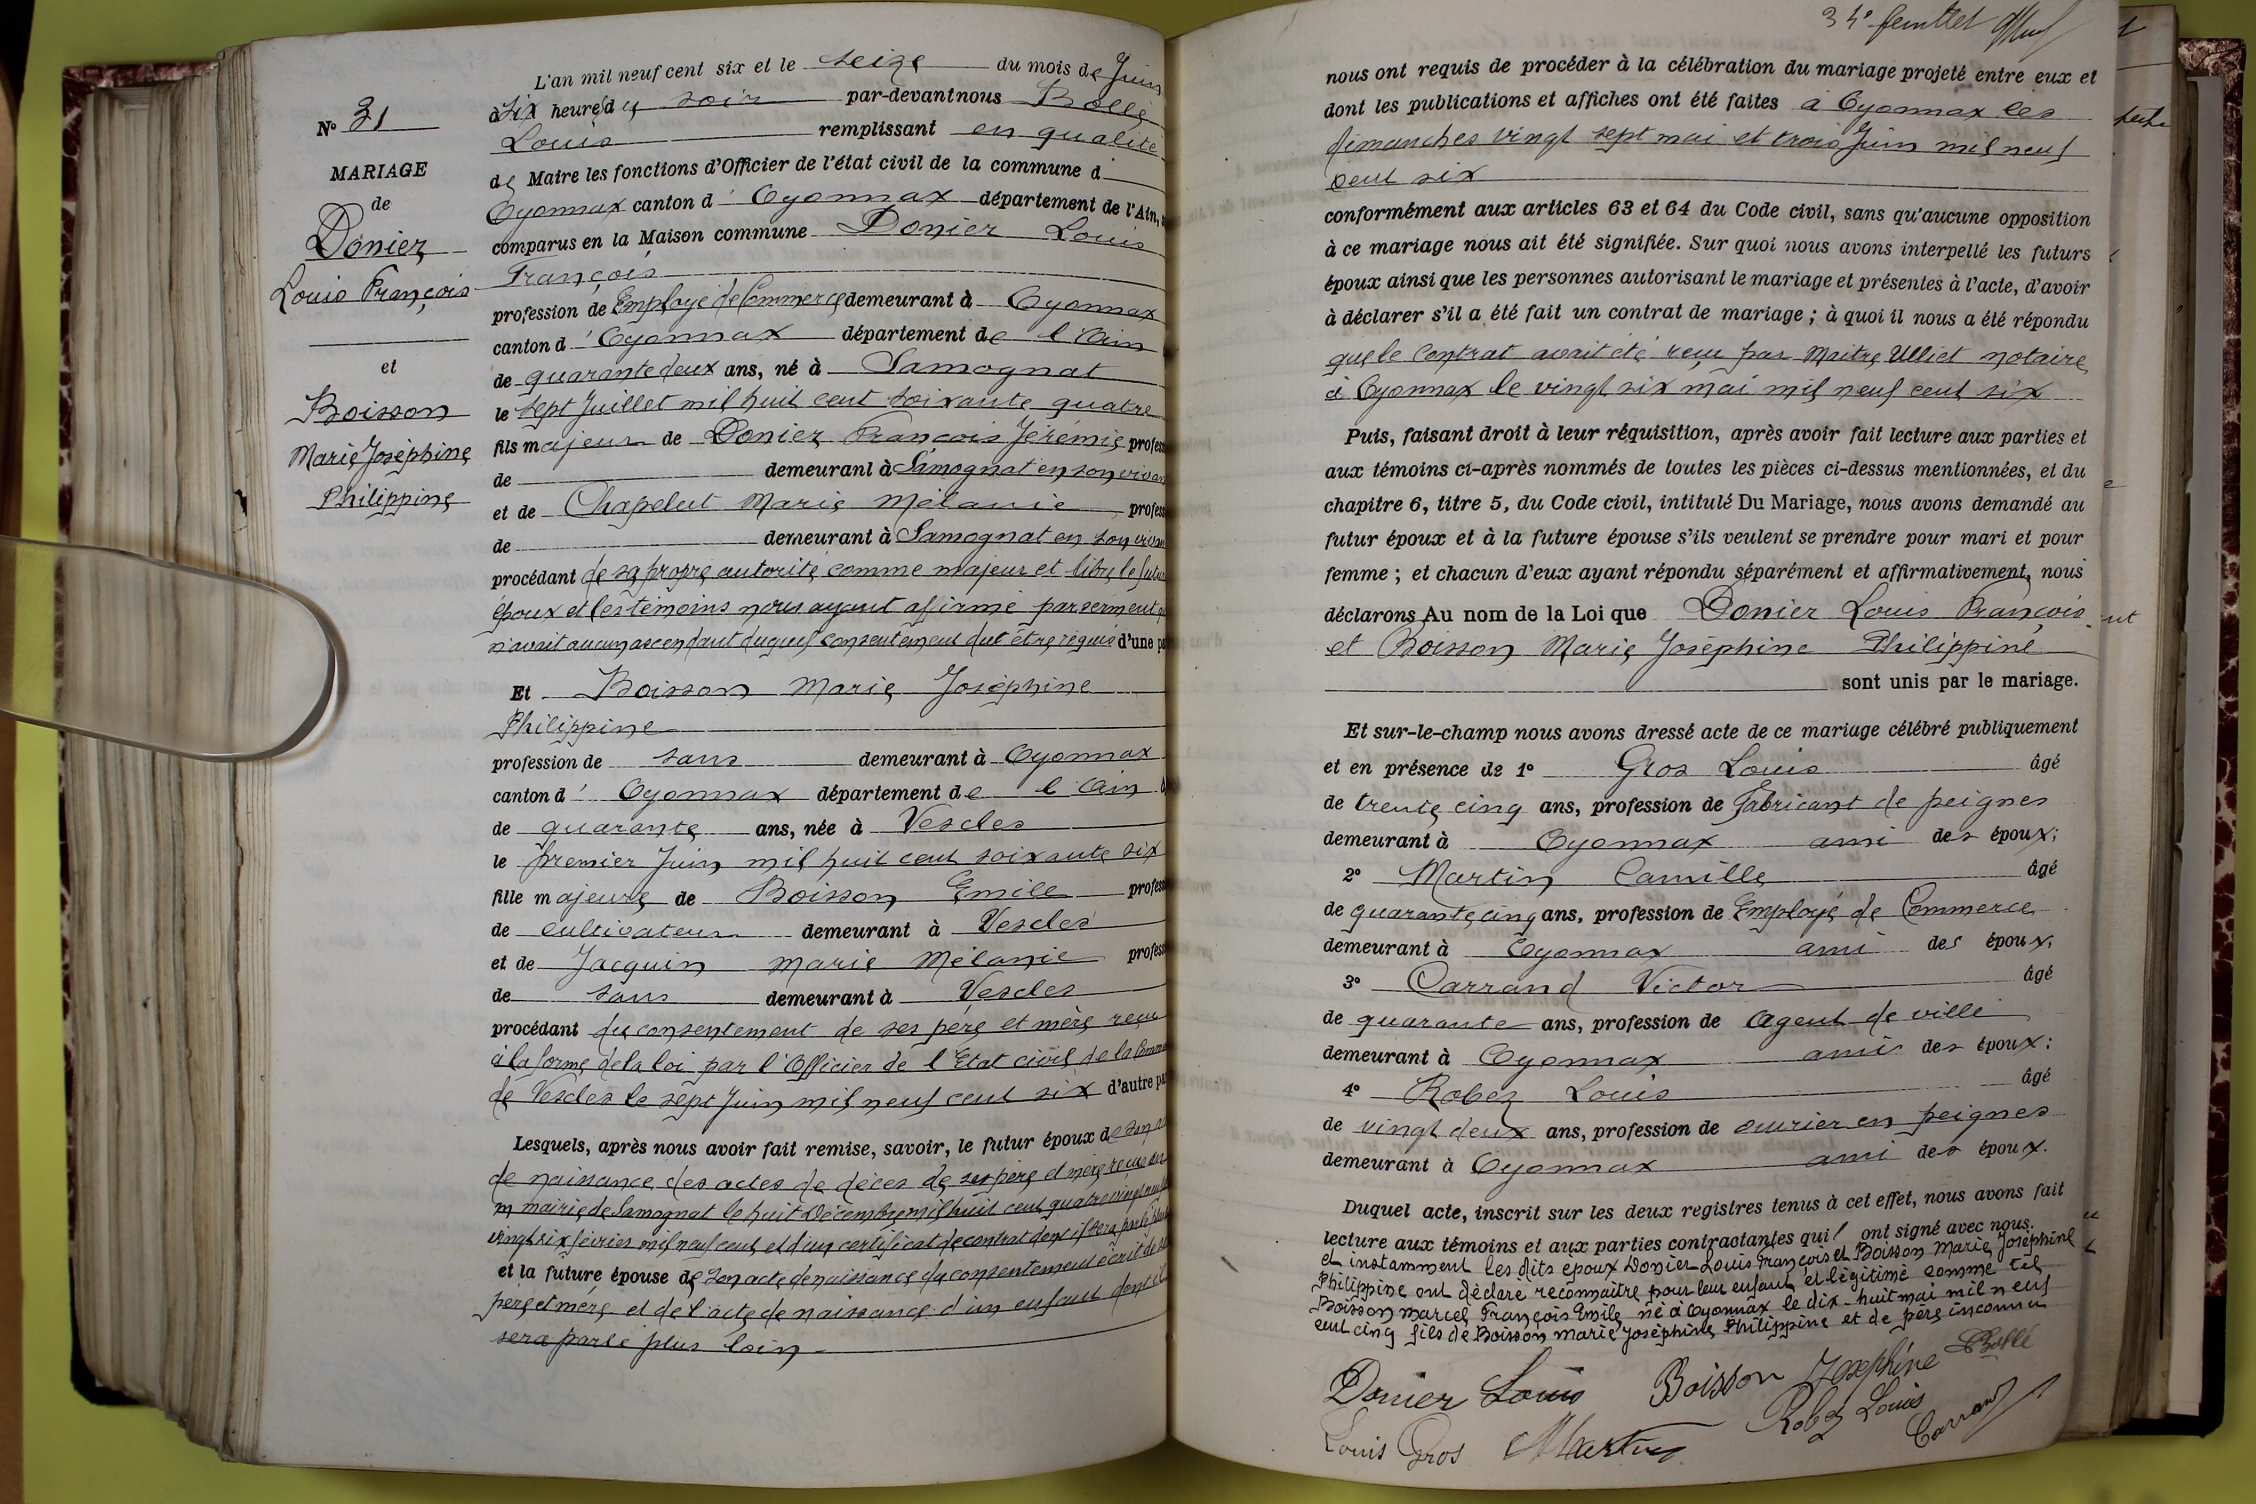 N° 31
MARIAGE
de
Donier
Louis François
et
Boisson
Marie Joséphine
Philippine
L'an mil neuf cent six et le seize du mois de Juin
à six heures du soir par-devant nous Bollé
Louis remplissant en qualité
de Maire les fonctions d'Officier de l'état civil de la commune d
Oyonnax canton d' Oyonnax département de l'Ain,
comparus en la Maison commune Donier Louis
François
profession de Employé de Commerce demeurant à Oyonnax
canton d' Oyonnax département de l'Ain
de quarante deux ans, né à Samognat
le sept Juillet mil huit cent soixante quatre
fils majeur de Donier François Jérémie profess
de demeurant à Samognat en son vivan
et de Chapelut Marie Mélanie profess
de demeurant à Samognat en son vivan
procédant de sa propre autorité comme majeur et libre le futur
époux et les témoins nous ayant affirmé par serment
n'avait aucun ascendant duquel consentement dut être requis d'une pa
Et Boisson Marie Joséphine
Philippine
profession de sans demeurant à Oyonnax
canton d' Oyonnax département de l'Ain
de quarante ans, née à Vescles
le premier Juin mil huit cent soixante six
fille majeure de Boisson Emile profess
de cultivateur demeurant à Vescles
et de Jacquin Marie Mélanie profess
de sans demeurant à Vescles
procédant du consentement de ses père et mère reçu
à la forme de la loi par l'Officier de l'Etat civil de la Comm
de Vescles le sept Juin mil neuf cent six d'autre pa
Lesquels, après nous avoir fait remise, savoir, le futur époux de son
de naissance des actes de décès de ses père et mère reçus
mairie de Samognat le huit Décembre mil huit cent quatre vingt
vingt six février mil neuf cent et d'un certificat de contrat dont il sera parlé plus
et la future épouse de son acte de naissance du consentement écrit de
père et mère et de l'acte de naissance d'un enfant dont il
sera parlé plus loin
34e feuillet
nous ont requis de procéder à la célébration du mariage projeté entre eux et
dont les publications et affiches ont été faites à Oyonnax les
dimanches vingt sept mai et trois Juin mil neuf
cent six
conformément aux articles 63 et 64 du Code civil, sans qu'aucune opposition
à ce mariage nous ait été signifiée. Sur quoi nous avons interpellé les futurs
époux ainsi que les personnes autorisant le mariage et présentes à l'acte, d'avoir
à déclarer s'il a été fait un contrat de mariage ; à quoi il nous a été répondu
que le Contrat avait été reçu par Maitre Ulliet notaire
à Oyonnax le vingt six mai mil neuf cent six
Puis, faisant droit à leur réquisition, après avoir fait lecture aux parties et
aux témoins ci-après nommés de toutes les pièces ci-dessus mentionnées, et du
chapitre 6, titre 5, du Code civil, intitulé Du Mariage, nous avons demandé au
futur époux et à la future épouse s'ils veulent se prendre pour mari et pour
femme ; et chacun d'eux ayant répondu séparément et affirmativement, nous
déclarons Au nom de la Loi que Donier Louis François
et Boisson Marie Joséphine Philippine
sont unis par le mariage.
Et sur-le-champ nous avons dressé acte de ce mariage célébré publiquement
et en présence de 1° Gros Louis âgé
de trente cinq ans, profession de fabricant de peignes
demeurant à Oyonnax ami des époux;
2° Martin Camille âgé
de quarante cinq ans, profession de Employé de Commerce
demeurant à Oyonnax ami des époux;
3° Carrand Victor âgé
de quarante ans, profession de agent de ville
demeurant à Oyonnax ami des époux;
4° Robez Louis âgé
de vingt deux ans, profession de ouvrier en peignes
demeurant à Oyonnax ami des époux.
Duquel acte, inscrit sur les deux registres tenus à cet effet, nous avons fait
lecture aux témoins et aux parties contractantes qui ont signé avec nous.
et instamment les dits époux Donier Louis François et Boisson Marie Joséphine
Philippine ont déclaré reconnaître pour leur enfant et légitimé comme tel
Boisson Marcel François Emile né à Oyonnax le dix-huit mai mil neuf
cent cinq fils de Boisson Marie Joséphine Philippine et de père inconnu
Donier Louis Boisson Joséphine Bollé
Louis Gros Martin Robez Louis Carrand